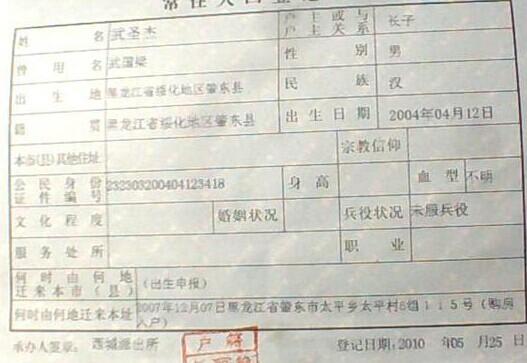 常住人口登记
姓 名 武圣杰 户主或与户主关系 长子
曾用名 武国梁 性别 男
出生地 黑龙江省绥化地区肇东县 民族 汉
籍贯 黑龙江省绥化地区肇东县 出生日期 2004年04月12日
本市(县)其他住址 宗教信仰
公民身份证件编号 232303200404123418 身高 血型 不明
文化程度 婚姻状况 兵役状况 未服兵役
服务处所 职业
何时由何地迁来本市(县) (出生申报)
何时由何地迁来本址 2007年12月07日黑龙江省肇东市太平乡太平村6组115号(购房入户)
承办人签章: 西城派出所 户 登记日期:2010 年05 月25 日